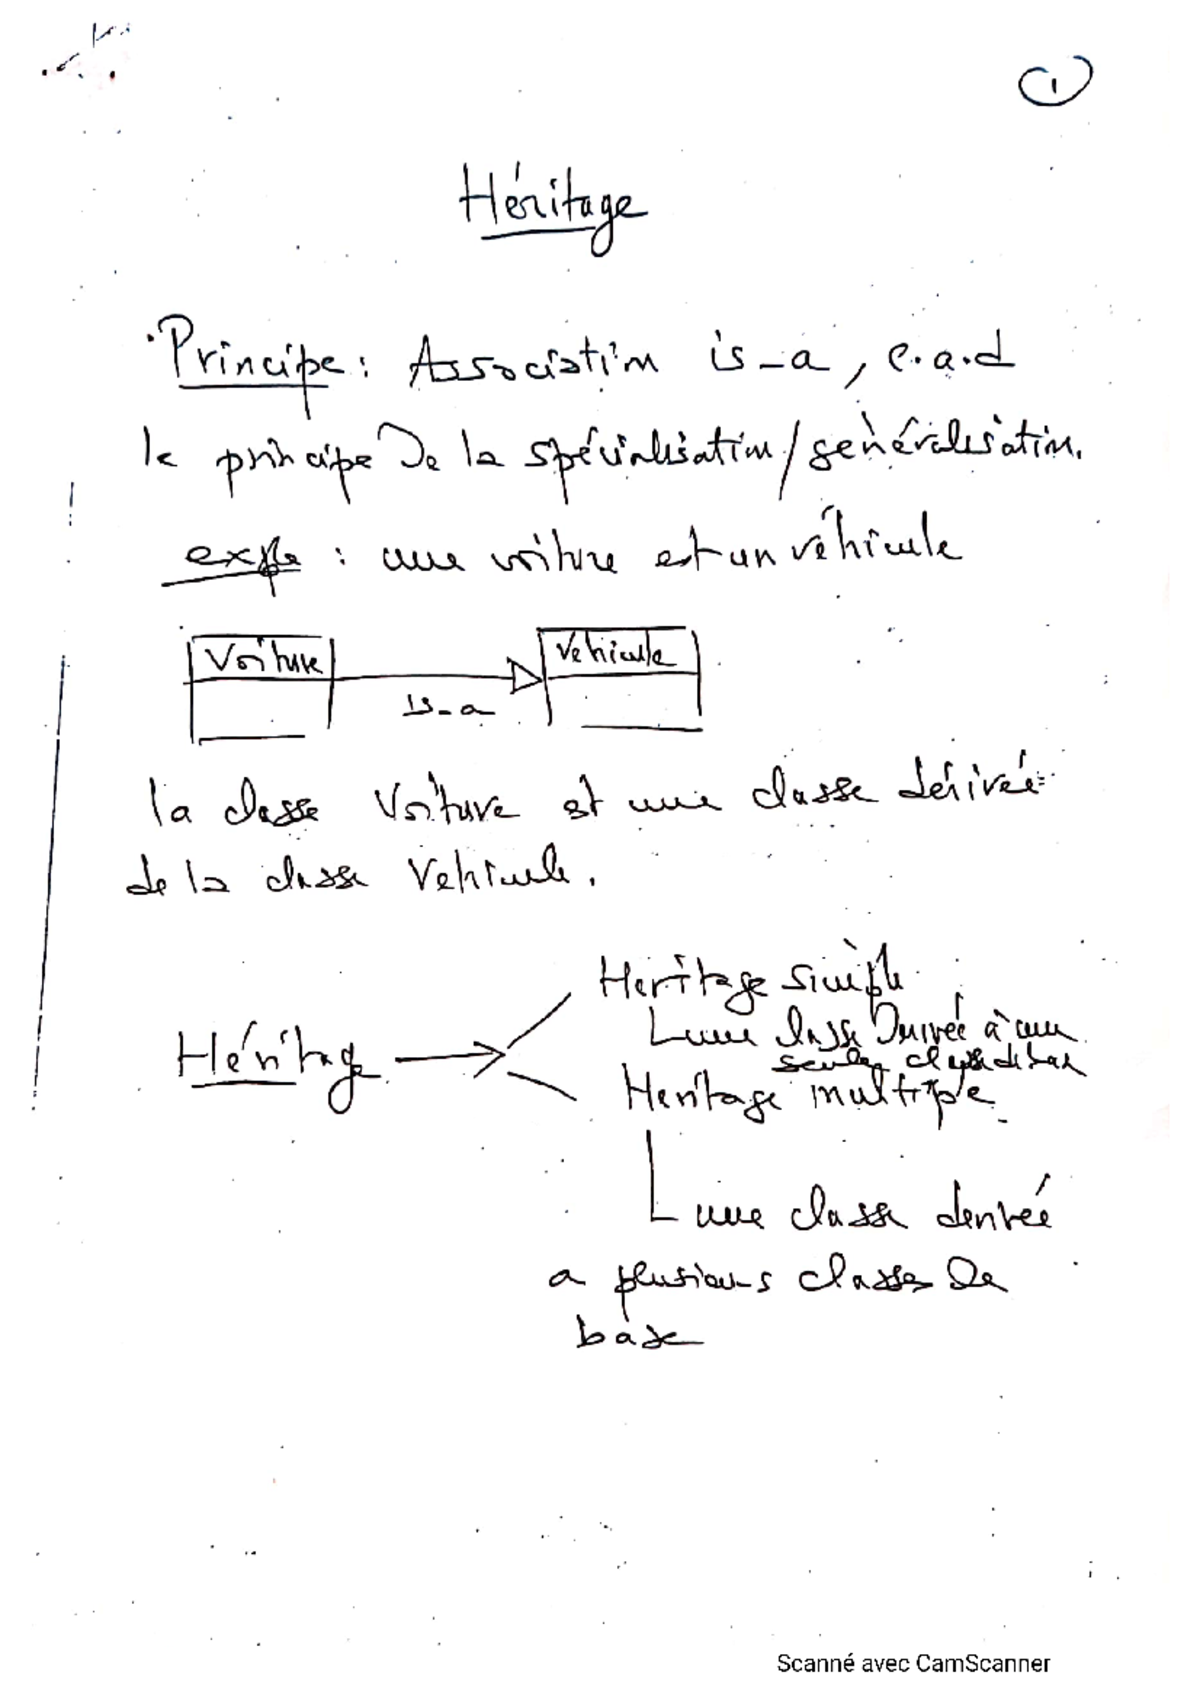 1
Héritage
Principe : Association is-a, c.a.d
le principe de la spécialisation/généralisation.
exple : une voiture est un véhicule
Voiture
Vehicule
is-a
la classe Voiture est une classe dérivée
de la classe Vehicule.
Heritage simple
une classe dérivée à une
seule classe de base
Héritage
Heritage multiple
une classe derivée
a plusieurs classes de
base
Scanné avec CamScanner